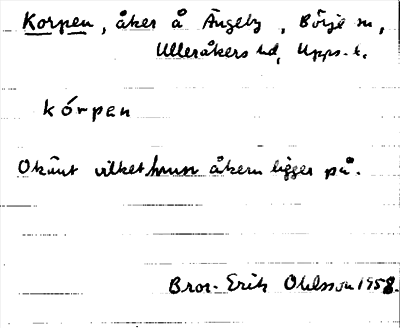 Korpen, åker å Ängeby, Börje sn,
Ulleråkers hd, Upps. l.
kórpen
Okänt vilket hmn åkern ligger på.
Bror-Erik Ohlsson 1958.